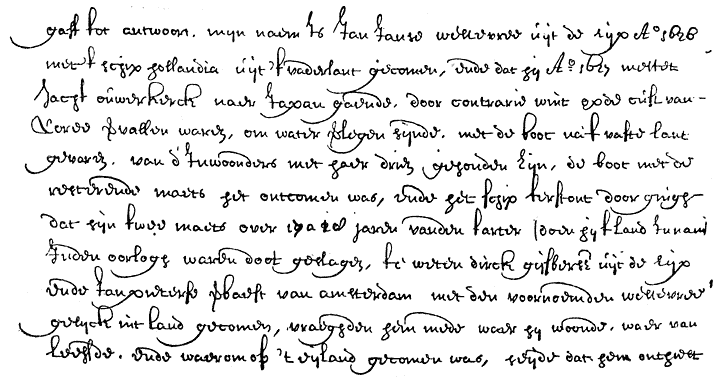 gaff tot antwoort. mijn naem Is Jan Janse weltevree uijt de rijp Ao 1626
met 't schip hollandia uijt 't vaderlant gecomen, ende dat hij Ao 1627 mettet
Jacht ouwerkerck naer Japan gaende. door contrarie wint op de cust van
Coree vervallen waren, om water verlegen sijnde. met de boot nae 't vaste lant
gevaren. van d' Inwoonders met haer drien gehouden sijn, de boot met de
resterende maets het ontcomen was, ende het schip terstont door gingh
dat sijn twee maets over 17 a 18 jaren vanden tarter (doen hij 't land In nam)
Inden oorlogh waren doot geslagen, te weten dirck gijsbertsz uijt de rijp
ende Jan pieterse verbaest van amsterdam met den voornoemden weltevree
gelijck int land gecomen, vraeghden hem mede waer hij woonde. waer van
leeffde. ende waerom op 't eijland gecomen was, seijde dat hem onthielt